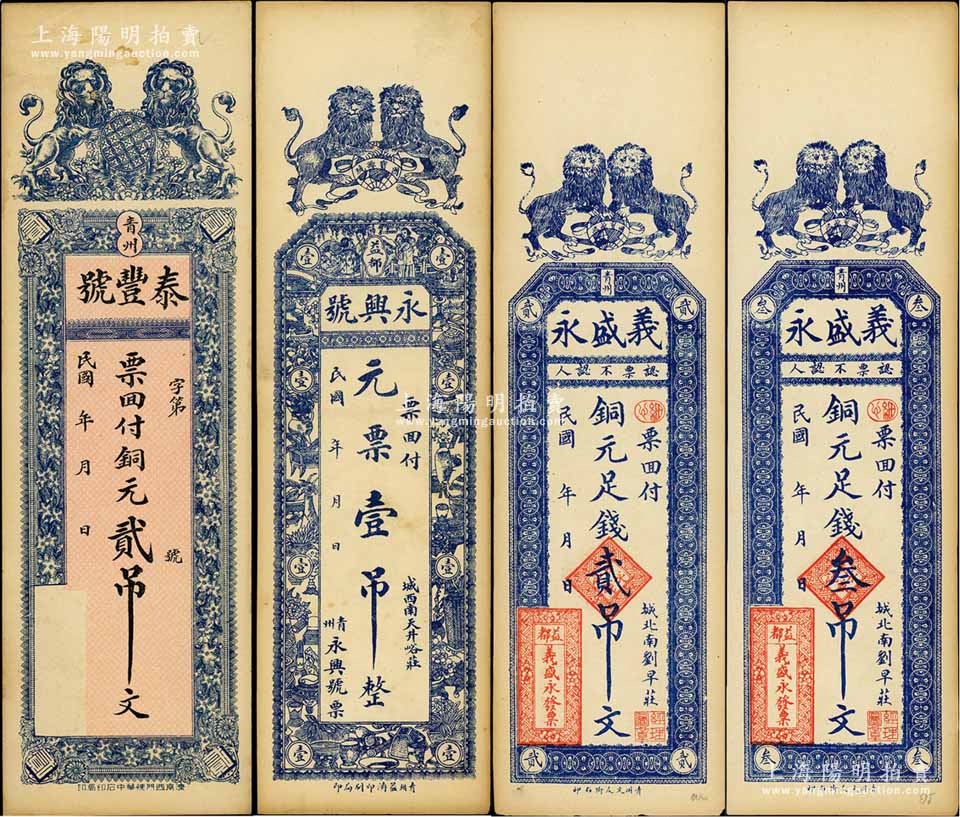 上海陽明拍賣
www.yangmingauction.com
青州
泰豐號
字第
號
票回付銅元貳吊文
民國 年 月 日
印局印石中華德門西南濟
益都
永興號
壹
壹
壹
壹
壹
壹
壹
壹
壹
壹
票回付
元票壹吊整
民國 年 月 日
城西南天井峪莊
青州
永興號票
印局刷印濟益州青
上海陽明拍賣
www.yangmingauction.com
青州
貳
貳
貳
貳
義盛永
認票不認人
票回付
銅元足錢貳吊文
民國 年 月 日
城北南劉早莊
益都
義盛永發票
經理
印石街人文州青
青州
叁
叁
叁
叁
義盛永
認票不認人
票回付
銅元足錢叁吊文
民國 年 月 日
城北南劉早莊
益都
義盛永發票
經理
上海陽明拍賣
www.yangmingauction.com